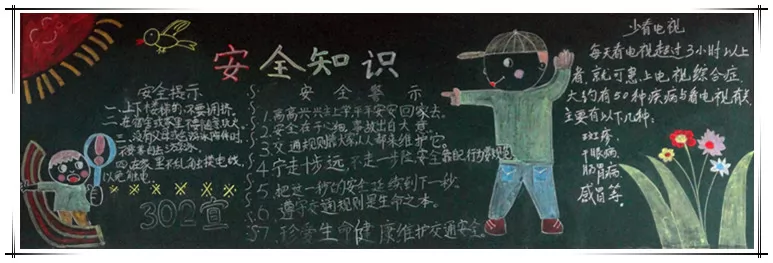 安全知识
安全提示
一、上下楼梯的不要拥挤
二、在宿舍或家里不
三、没有
要
四、在家里不乱触摸电线,
以免触电
302宣
安全警示
1、高高兴兴去上学,平平安安回家去。
2、安全在于心细,事故出自大意
3、交通规则
4、宁走十步远,不走一步险
5、把这一秒的安全延续到下一秒.
6、遵守交通规则是生命之本。
7、珍爱生命健康维护交通安全。
少看电视
每天看电视超过3小时以上
者,就可患上电视综合症,
大约有50种疾病与看电视有关,
主要有以下几种:
斑疹、
干眼病、
肠胃病、
感冒等。